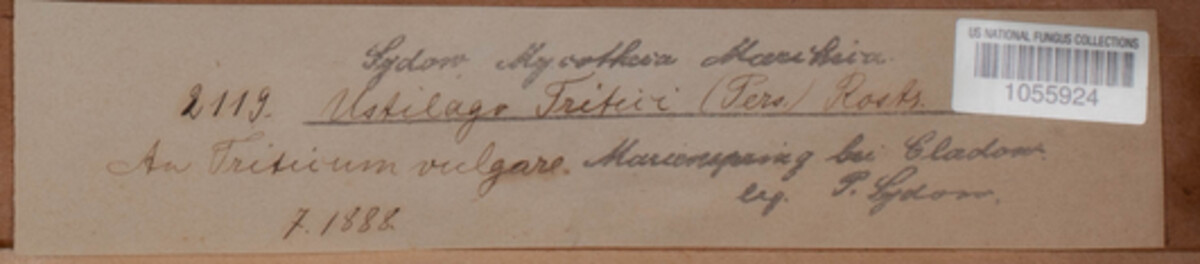 Sydow, Mycotheca Marchica.
US NATIONAL FUNGUS COLLECTIONS
1055924
2119. Ustilago Tritici (Pers.) Rostr.
An Triticum vulgare. Marienspring bei Cladow.
leg. P. Sydow.
7. 1888.